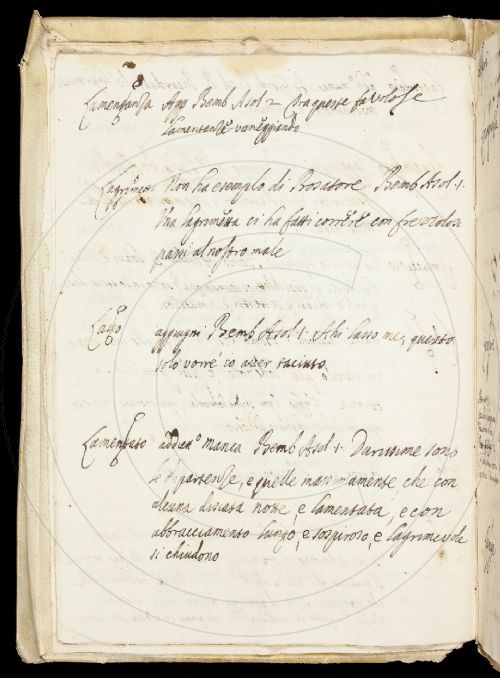 Lamentanza Agg. Bemb Asol 2 Tra queste favolose
lamentanze vaneggiando
Lagrimetta Non ha esempio di Prosatore Bemb Asol. 1.
Una lagrimetta ci ha fatti correre con frezzolosi
passi al nostro male
Lasso aggiugni Bemb Asol. 1. Ahi lasso me, questo
solo vorre' io aver taciuto
Lamentato addiet.o manca Bemb Asol. 1. Durissime sono
le dipartenze, e quelle massimamente, che con
alcuna disiata notte, e lamentata, e con
abbracciamento lungo, e sospiroso, e lagrimevole
si chiudono